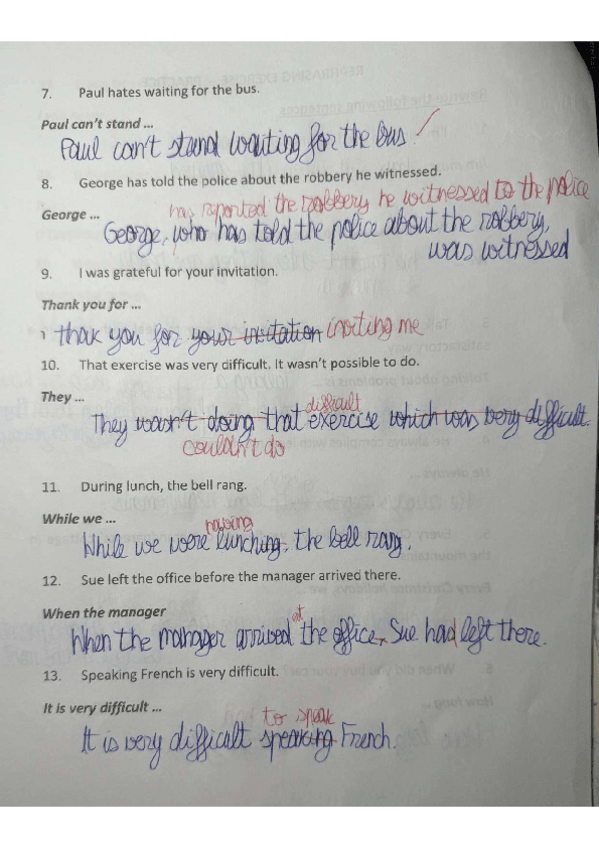 7. Paul hates waiting for the bus.
Paul can't stand ...
Paul can't stand waiting for the bus
8. George has told the police about the robbery he witnessed.
has reported the robbery he witnessed to the police
George ...
George, who has told the police about the robbery,
was witnessed
9. I was grateful for your invitation.
Thank you for ...
thak you for your invitation inviting me
10. That exercise was very difficult. It wasn't possible to do.
They ...
difficult
They wasn't doing that exercise which was very difficult.
couldn't do
11. During lunch, the bell rang.
While we ...
having
While we were lunching. the bell rang.
12. Sue left the office before the manager arrived there.
When the manager
at
When the manager arrived the office, Sue had left there.
13. Speaking French is very difficult.
It is very difficult ...
to speak
It is very difficult speaking French.